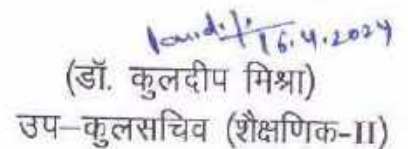 16.4.2024
(डॉ. कुलदीप मिश्रा)
उप–कुलसचिव (शैक्षणिक-II)